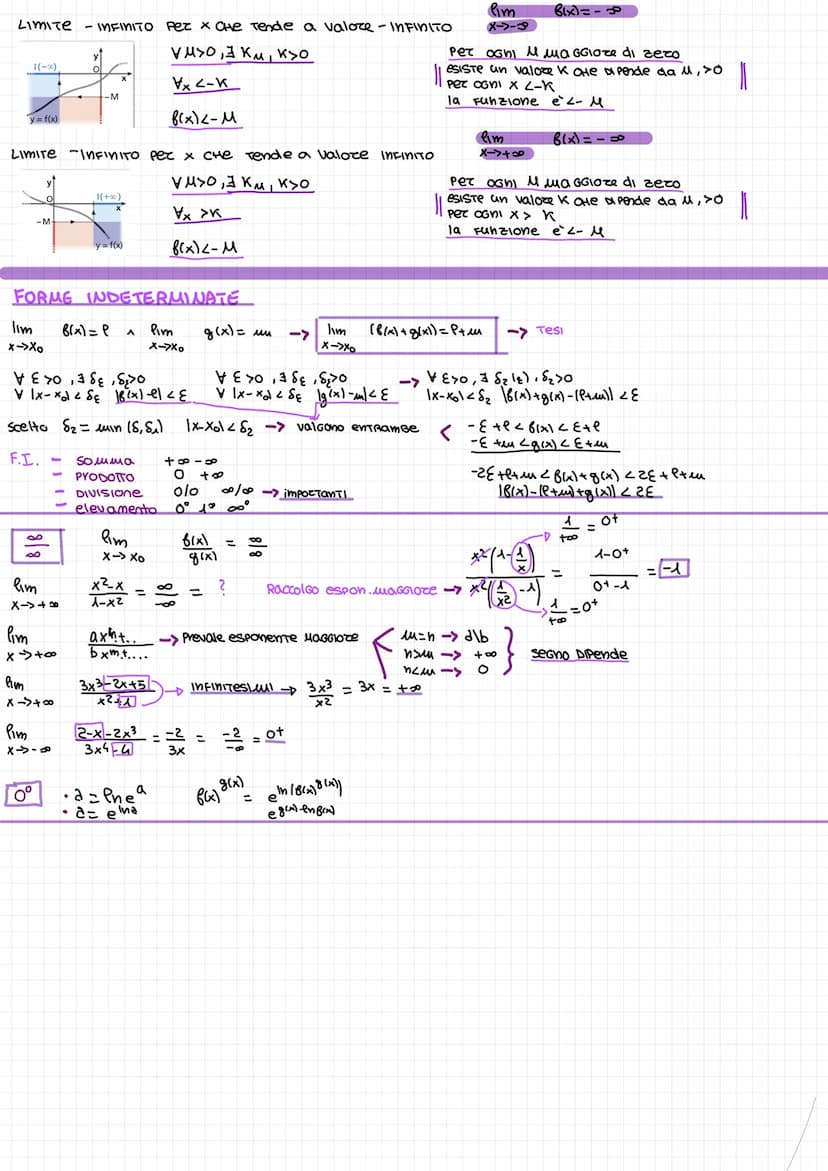 LIMITE - INFINITO PER x CHE TENDE A VALORE - INFINITO
lim f(x) = - ∞
x→-∞
I(-∞)
y
O
x
-M
y = f(x)
∀ M>0, ∃ K_M, K>0
∀x <-K
f(x)<-M
PER OGNI M MAGGIORE DI ZERO
ESISTE UN VALORE K CHE DIPENDE DA M, >0
PER OGNI x <-K
LA FUNZIONE È <- M
LIMITE -INFINITO PER x CHE TENDE A VALORE INFINITO
lim f(x) = - ∞
x→+∞
y
O
I(+∞)
x
-M
y = f(x)
∀ M>0, ∃ K_M, K>0
∀x >K
f(x)<-M
PER OGNI M MAGGIORE DI ZERO
ESISTE UN VALORE K CHE DIPENDE DA M, >0
PER OGNI x > K
LA FUNZIONE È <- M
FORME INDETERMINATE
lim f(x) = l ∧ lim g(x) = m → lim (f(x)+g(x)) = l+m → TESI
x→x₀ x→x₀ x→x₀
∀ ε>0, ∃ δε, δε>0 ∀ ε>0, ∃ δε, δε>0 → ∀ ε>0, ∃ δ₂(ε), δ₂>0
∀ |x-x₀| < δε |f(x)-l| < ε ∀ |x-x₀| < δε |g(x)-m| < ε |x-x₀| < δ₂ |f(x)+g(x)-(l+m)| < ε
SCELTO δ₂ = min (δ, δ₁) |x-x₀| < δ₂ → VALGONO ENTRAMBE < -ε+l < f(x) < ε+l
-ε+m < g(x) < ε+m
-2ε+l+m < f(x)+g(x) < 2ε+l+m
|f(x)-(l+m)+g(x)| < 2ε
F.I. - SOMMA +∞-∞
- PRODOTTO 0 +∞
- DIVISIONE 0/0 ∞/∞ → IMPORTANTI
- ELEVAMENTO 0⁰ 1^∞ ∞⁰
∞/∞ lim f(x)/g(x) = ∞/∞
x→x₀
1/+∞ = 0⁺
lim (x²-x)/(1-x²) = ∞/-∞ = ? RACCOLGO ESPON. MAGGIORE → x²(1-1/x)/x²(1/x²-1) = (1-0⁺)/(0⁺-1) = -1
x→+∞
1/+∞ = 0⁺
lim axⁿ+../bxᵐ+.... → PREVALE ESPONENTE MAGGIORE < m=n → a\b
x→+∞
n>m → +∞
n<m → 0
} SEGNO DIPENDE
lim (3x³-2x+5)/(x²+1) → INFINITESIMI → 3x³/x² = 3x = +∞
x→+∞
lim (2-x-2x³)/(3x⁴-4) = -2/3x = -2/-∞ = 0⁺
x→-∞
0⁰ • a = ln eᵃ f(x)^g(x) = e^ln(f(x)^g(x))
• a = e^lna e^g(x)·lnf(x)